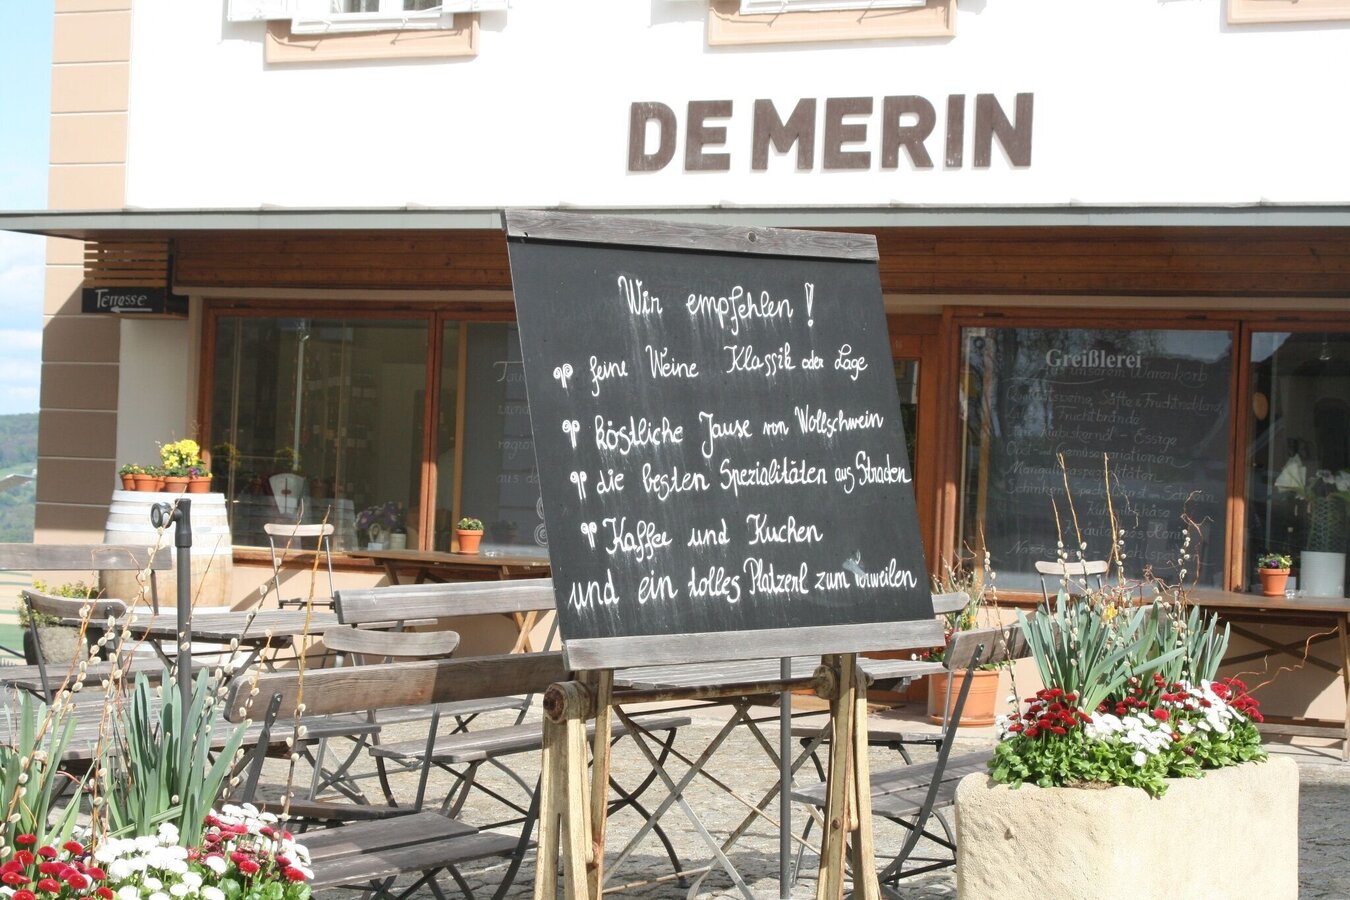 DE MERIN
Terrasse
Wir empfehlen!
feine Weine Klassik oder Lage
köstliche Jause von Wollschwein
die besten Spezialitäten aus Straden
Kaffee und Kuchen
und ein tolles Platzerl zum verweilen
Greißlerei
unserem Warenkorb
Säfte &
Fruchtbrände
Kürbiskernöl - Essige
und Gemüsevariationen
Mangalitzaspezialitäten
Schinken